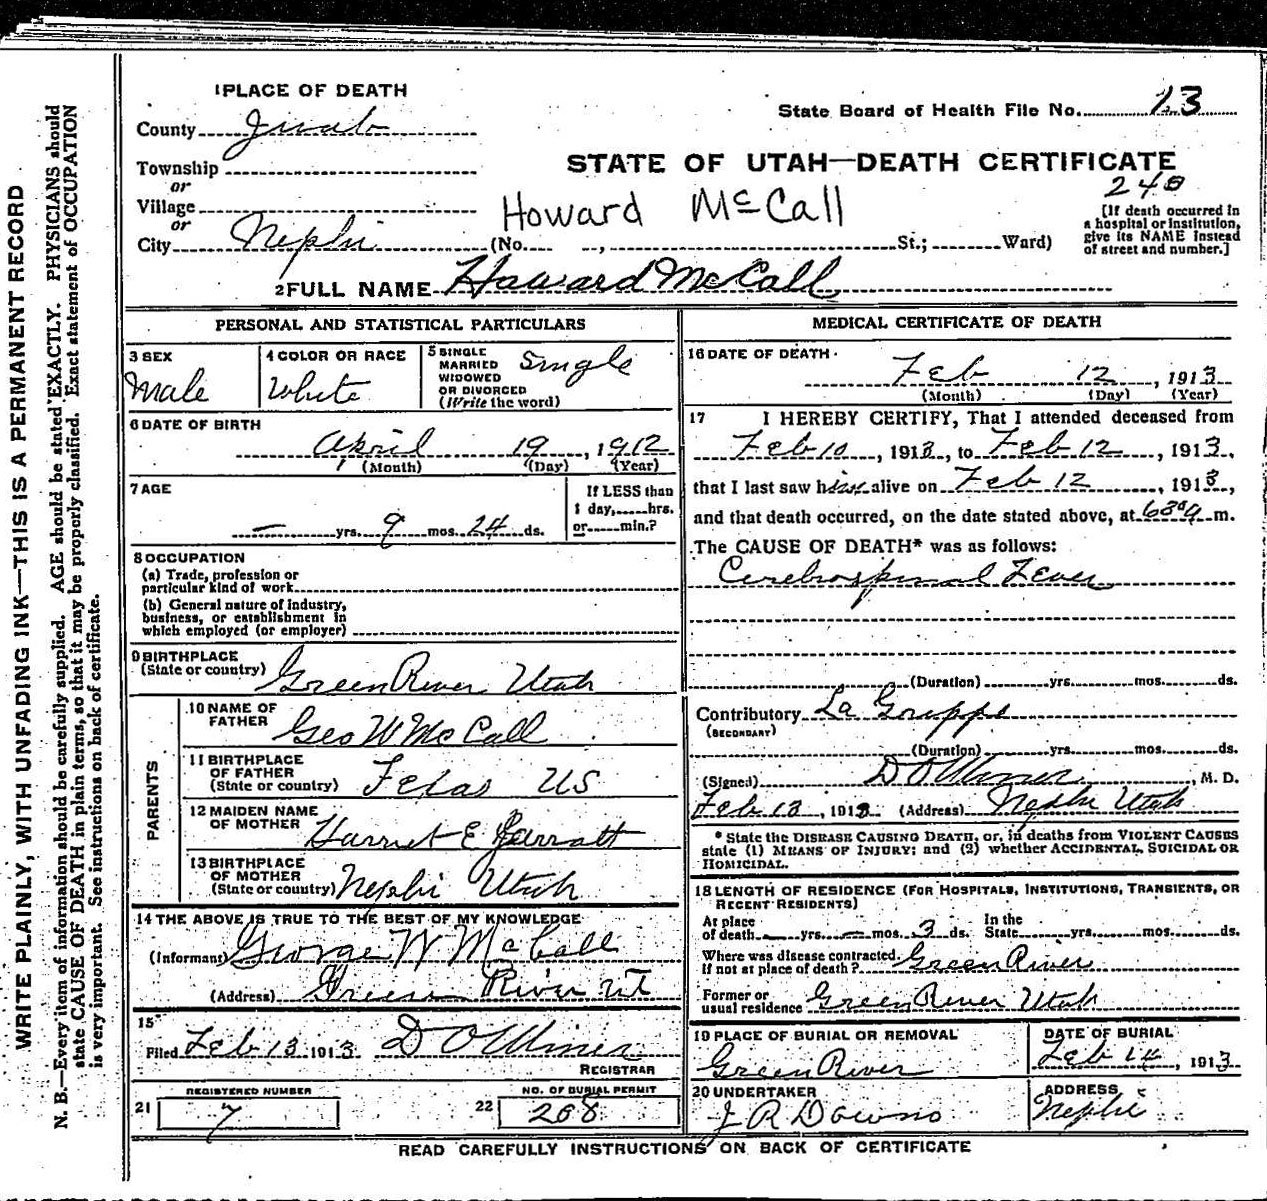 1 PLACE OF DEATH
County Juab
State Board of Health File No. 13
Township
or
Village
or
City Nephi
STATE OF UTAH—DEATH CERTIFICATE
240
Howard McCall
(No. , St.; Ward)
[If death occurred in
a hospital or institution,
give its NAME instead
of street and number.]
2 FULL NAME Howard McCall
PERSONAL AND STATISTICAL PARTICULARS
3 SEX
Male
4 COLOR OR RACE
White
5 SINGLE
MARRIED
WIDOWED
OR DIVORCED
(Write the word)
Single
6 DATE OF BIRTH
April 19, 1912
(Month) (Day) (Year)
7 AGE
— yrs. 9 mos. 24 ds.
If LESS than
1 day, hrs.
or min.?
8 OCCUPATION
(a) Trade, profession or
particular kind of work
(b) General nature of industry,
business, or establishment in
which employed (or employer)
9 BIRTHPLACE
(State or country) Green River Utah
PARENTS
10 NAME OF
FATHER Geo W McCall
11 BIRTHPLACE
OF FATHER
(State or country) Texas US
12 MAIDEN NAME
OF MOTHER Harriet E Jarratt
13 BIRTHPLACE
OF MOTHER
(State or country) Nephi Utah
14 THE ABOVE IS TRUE TO THE BEST OF MY KNOWLEDGE
(Informant) George W McCall
(Address) Green River Ut
15
Filed Feb 13 1913 D O Miner
REGISTRAR
REGISTERED NUMBER
21 7
NO. OF BURIAL PERMIT
22 268
MEDICAL CERTIFICATE OF DEATH
16 DATE OF DEATH
Feb 12, 1913
(Month) (Day) (Year)
17 I HEREBY CERTIFY, That I attended deceased from
Feb 10, 1913, to Feb 12, 1913,
that I last saw him alive on Feb 12, 1913,
and that death occurred, on the date stated above, at 630a m.
The CAUSE OF DEATH* was as follows:
Cerebrospinal Fever
(Duration) yrs. mos. ds.
Contributory La Grippe
(SECONDARY)
(Duration) yrs. mos. ds.
(Signed) D O Miner, M. D.
Feb 13, 1913 (Address) Nephi Utah
* State the DISEASE CAUSING DEATH, or, in deaths from VIOLENT CAUSES
state (1) MEANS OF INJURY; and (2) whether ACCIDENTAL, SUICIDAL OR
HOMICIDAL.
18 LENGTH OF RESIDENCE (FOR HOSPITALS, INSTITUTIONS, TRANSIENTS, OR
RECENT RESIDENTS)
At place
of death — yrs. — mos. 3 ds.
In the
State yrs. mos. ds.
Where was disease contracted,
if not at place of death? Green River
Former or
usual residence Green River Utah
19 PLACE OF BURIAL OR REMOVAL
Green River
DATE OF BURIAL
Feb 14, 1913
20 UNDERTAKER
J R Downs
ADDRESS
Nephi
READ CAREFULLY INSTRUCTIONS ON BACK OF CERTIFICATE
WRITE PLAINLY, WITH UNFADING INK—THIS IS A PERMANENT RECORD
N. B.—Every item of information should be carefully supplied. AGE should be stated EXACTLY. PHYSICIANS should
state CAUSE OF DEATH in plain terms, so that it may be properly classified. Exact statement of OCCUPATION
is very important. See instructions on back of certificate.